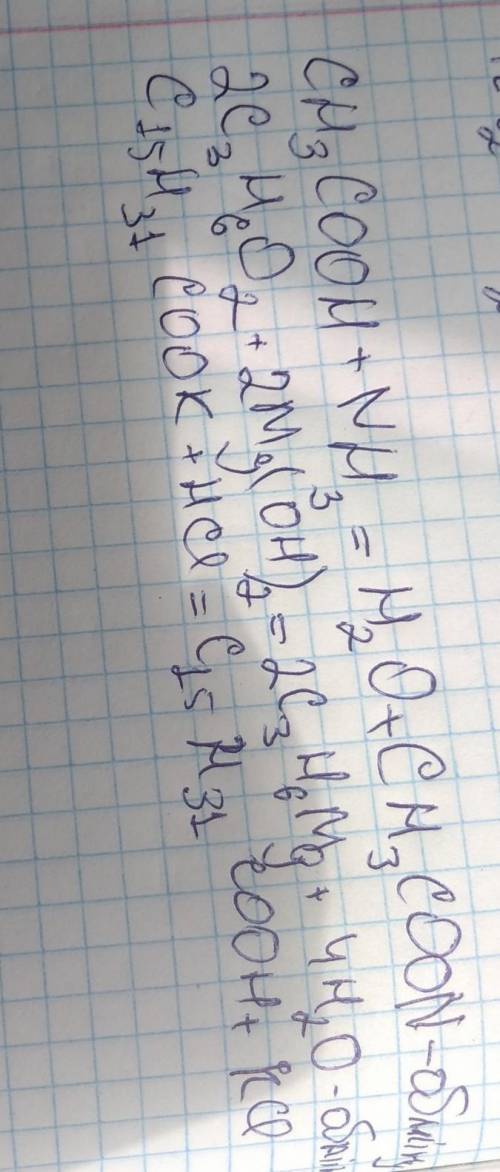 CH₃COOH + NH₃ = H₂O + CH₃COON - обмін
2C₃H₆O₂ + 2Mg(OH)₂ = 2C₃H₆Mg + 4H₂O - обмін
C₁₅H₃₁COOK + HCl = C₁₅H₃₁COOH + KCl